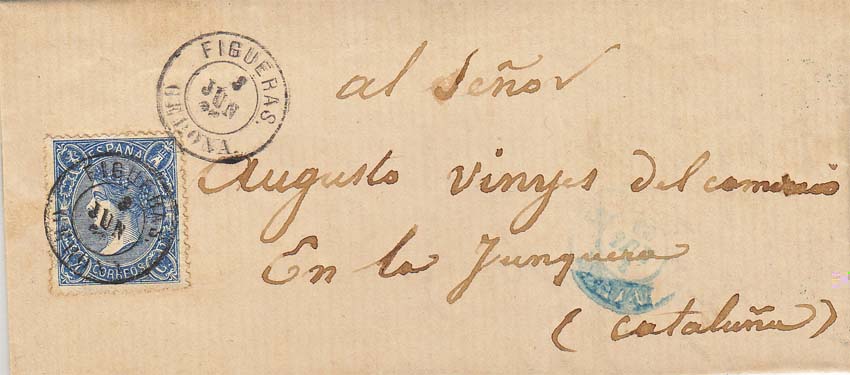 FIGUERAS.
3
JUN
GERONA.
al Señor
ESPAÑA
FIGUERAS.
3
JUN
CORREOS
Augusto Vinyes del comercio
En la Junquera
(Cataluña)